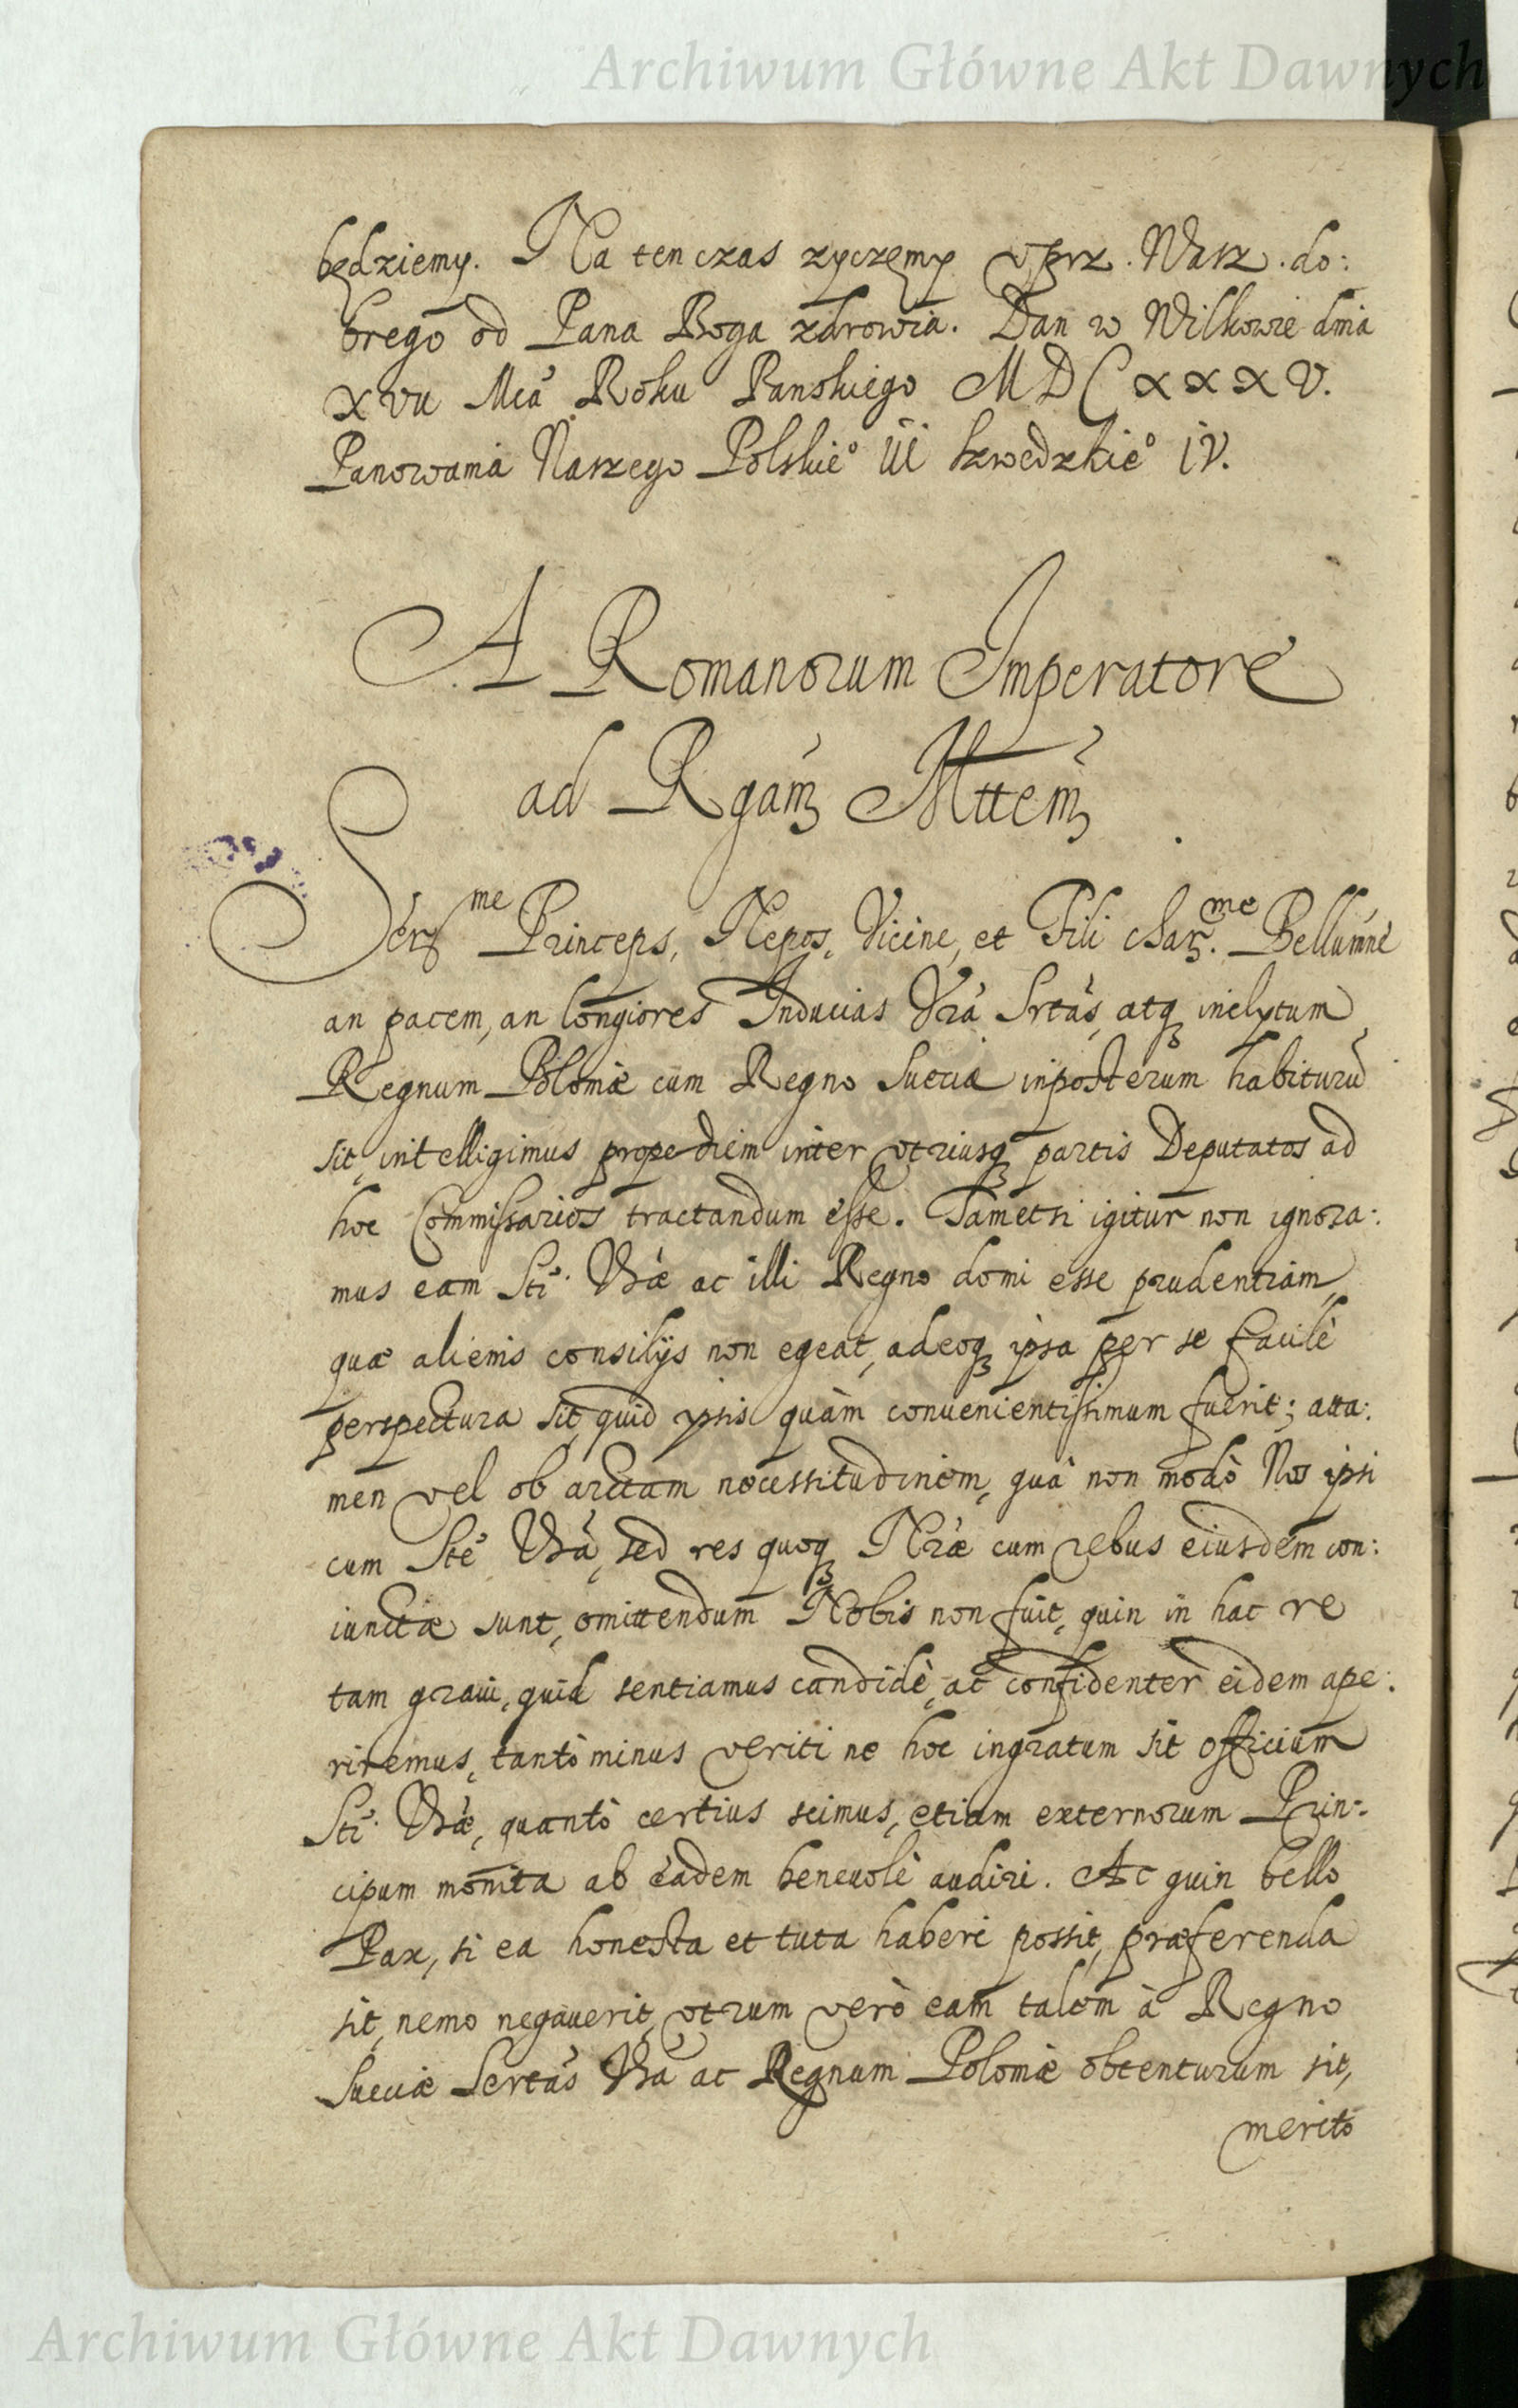 Archiwum Główne Akt Dawnych
będziemy. Na ten czas zyczemy vprz. Wasz. do:
brego od Pana Boga zdrowia. Dan w Wilkowie dnia
XVII Mca Roku Panskiego MDCXXXV.
Panowania Naszego Polskie° III Szwedzkie° IV.
A Romanorum Imperatore
ad Rgam Mttem
Serme Princeps, Nepos, Vicine, et Fili char.me Bellumne
an pacem, an longiores Inducias Vra Srtas, atq inclytum
Regnum Poloniæ cum Regno Sueciæ inposterum habiturũ
sit, intelligimus propediem inter vtriusq partis Deputatos ad
hoc Commissarios tractandum esse. Tametsi igitur non ignora:
mus eam Sti Vræ ac illi Regno domi esse prudentiam,
quæ alienis consilijs non egeat, adeoq ipsa per se facilè
perspectura sit, quid ipsis quàm conuenientissimum fuerit; atta:
men vel ob arctam necessitudinem, quâ non modò Nos ipsi
cum Ste Vrâ, sed res quoq Nræ cum rebus eiusdem con:
iunctæ sunt, omittendum Nobis non fuit, quin in hac re
tam graui, quid sentiamus candidè, ac confidenter eidem ape:
riremus, tantò minus veriti ne hoc ingratum sit officium
Sti Vræ, quantò certius scimus, etiam externorum Prin:
cipum monita ab eâdem beneuolè audiri. Ac quin bello
Pax, si ea honesta et tuta haberi possit, præferenda
sit, nemo negauerit, vtrum verò eam talem à Regno
Sueciæ Sertas Vra ac Regnum Poloniæ obtenturum sit,
merito
Archiwum Główne Akt Dawnych